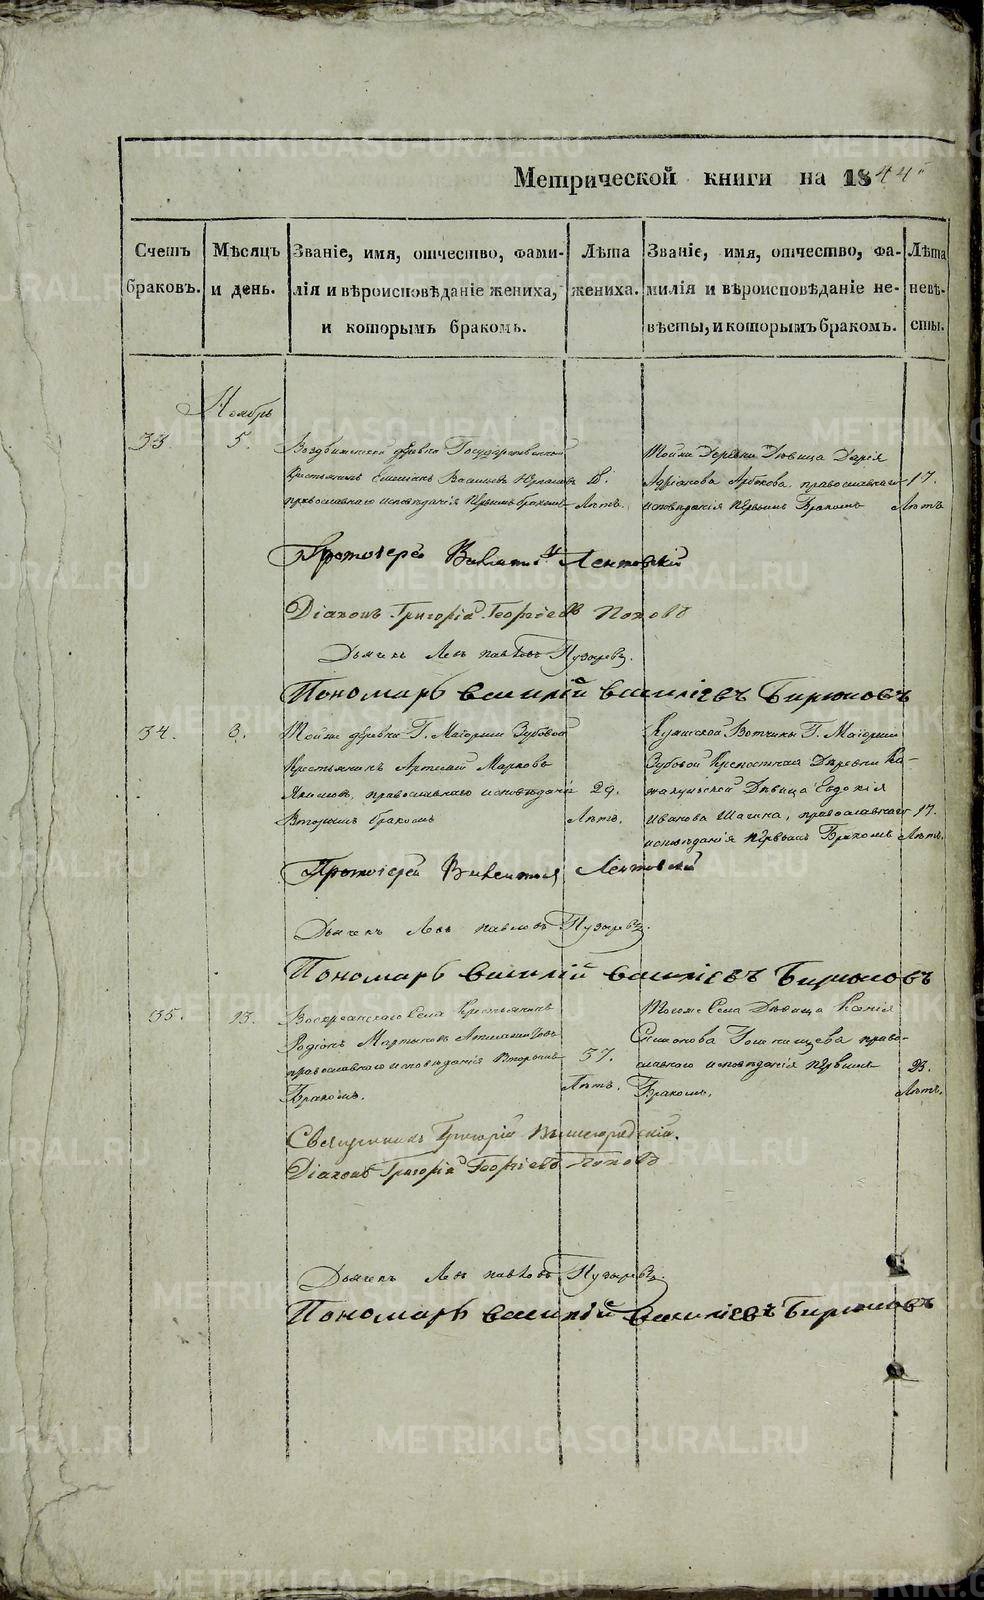 Метрической книги на 1844
Счетъ браковъ.
Мѣсяцъ и день.
Званіе, имя, отчество, фами-
лія и вѣроисповѣданіе жениха,
и которымъ бракомъ.
Лѣта жениха.
Званіе, имя, отчество, фа-
милія и вѣроисповѣданіе не-
вѣсты, и которымъ бракомъ.
Лѣта невѣ-
сты.
Ноябрь
33 5.
деревни Государственной
крестьянинъ Васильевъ 18.
православнаго исповѣданія первымъ бракомъ Лѣтъ.
Тойже Деревни Дѣвица Дарія
православнаго 17.
исповѣданія первымъ Бракомъ Лѣтъ
Протоіерей Викентій Лентовскій
Діаконъ Григорій Георгіевъ Поповъ
Дьячекъ Левъ Павловъ Пузыревъ.
Пономарь Василій Василіевъ Бирюковъ
34. 8.
Тойже деревни Г. Маіорши Зубовой
Крестьянинъ Артемій Марковъ
Якимовъ, православнаго исповѣданія 29.
Вторымъ бракомъ Лѣтъ.
Вотчины Г. Маіорши
Зубовой Крепостная Деревни
Дѣвица Евдокія
Иванова православнаго 17.
исповѣданія первымъ Бракомъ Лѣтъ.
Протоіерей Викентій Лентовскій
Дьячекъ Левъ Павловъ Пузыревъ.
Пономарь Василій Василіевъ Бирюковъ
35. 13.
Воскресенскаго Села Крестьянинъ
Родіонъ Мартиновъ
православнаго исповѣданія Вторымъ 37.
Бракомъ. Лѣтъ.
Тогоже Села Дѣвица Ксенія
Симонова право-
славнаго исповѣданія первымъ 23.
Бракомъ. Лѣтъ.
Священникъ Григорій
Діаконъ Григорій Георгіевъ Поповъ
Дьячекъ Левъ Павловъ Пузыревъ.
Пономарь Василій Василіевъ Бирюковъ
METRIKI.GASO-URAL.RU